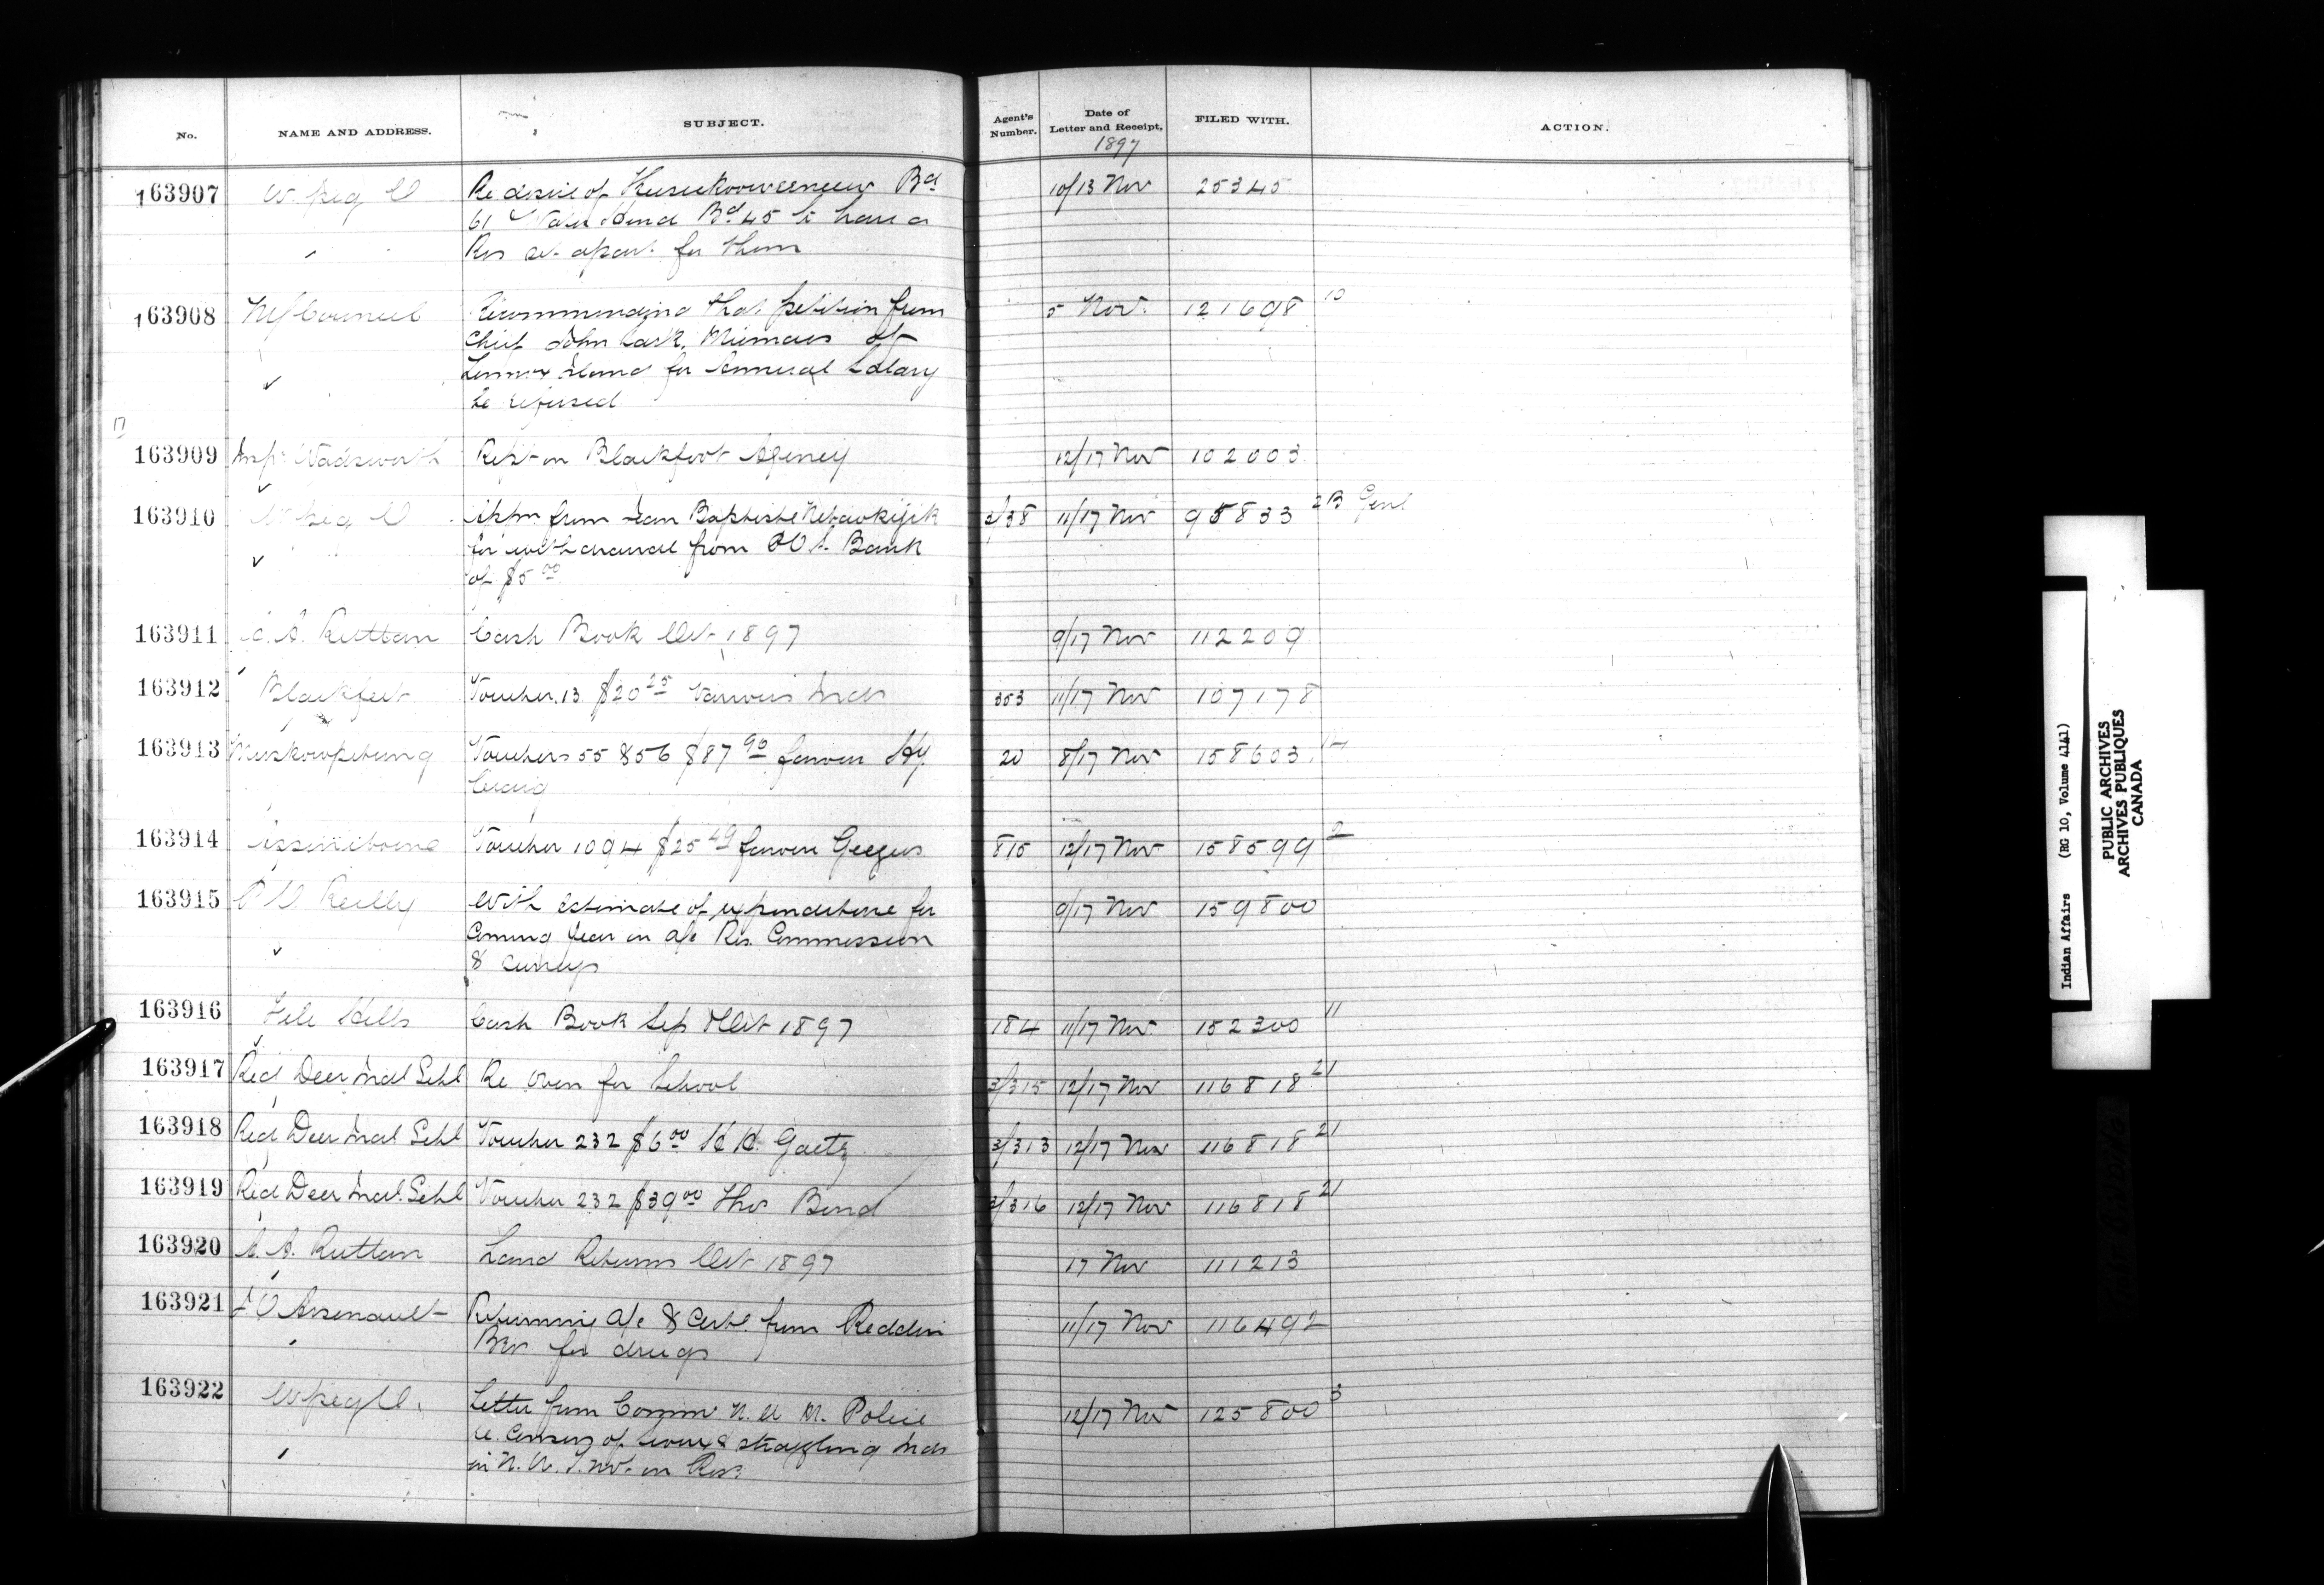 No. NAME AND ADDRESS. SUBJECT. Agent's Number. Date of Letter and Receipt, 1897 FILED WITH. ACTION.
163907 W.peg O Re desire of Bd 10/13 Nov 25345
61 Water Hend Bd 45 to have a
Res set apart for them
163908 Recommending that petition from 5 Nov. 121698 10
Chief John Sark, Micmacs of
Lennox Island for Annual Salary
be refused
17
163909 Insp. Wadsworth Rept on Blackfoot Agency 12/17 Nov 102003
163910 W.peg O from Jean Baptiste 2/38 11/17 Nov 95833 2B Genl
for withdrawal from P.O.S. Bank
of $5 00
163911 A. Ruttan Cash Book Oct 1897 9/17 Nov 112209
163912 Blackfeet Voucher 13 $20 25 Various Inds 353 11/17 Nov 107178
163913 Muskowpetung Vouchers 55 & 56 $87 90 favour Hy 20 8/17 Nov 158603
Craig
163914 Assiniboine Voucher 1094 $25 49 favour 815 12/17 Nov 158599 2
163915 Reilly With estimate of expenditure for 9/17 Nov 159800
Coming Year on a/c Res. Commission
& surveys
163916 File Hills Cash Book Sep & Oct 1897 184 11/17 Nov 152300 11
163917 Red Deer Indl Schl Re Oven for School 3/315 12/17 Nov 116818 21
163918 Red Deer Indl Schl Voucher 232 $6 00 H. H. Gaetz 3/313 12/17 Nov 116818 21
163919 Red Deer Indl. Schl Voucher 232 $39 00 Thos 3/316 12/17 Nov 116818 21
163920 A. Ruttan Land Returns Oct 1897 17 Nov 111213
163921 J O Arsenault Returning a/c & Certe. from Reddin 11/17 Nov 116492
Bros for drugs
163922 Wpeg O. Letter from Commr N. W. M. Police 12/17 Nov 125800 3
re Census of & straggling Inds
in N. W. T. not on Res.
Indian Affairs (RG 10, Volume 4141)
PUBLIC ARCHIVES
ARCHIVES PUBLIQUES
CANADA